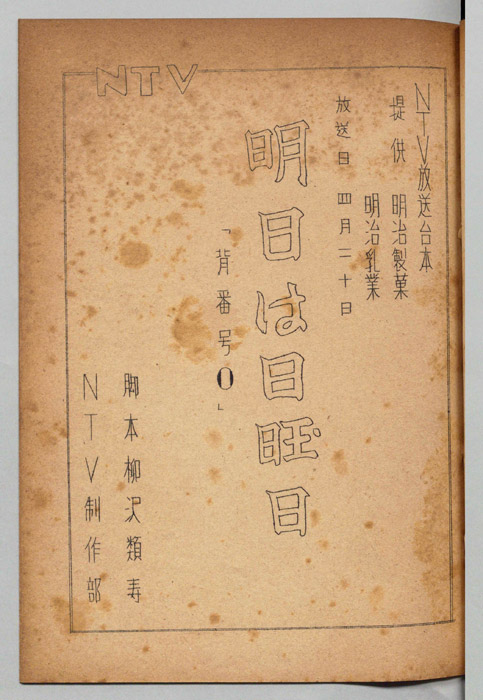 NTV
NTV放送台本
提供 明治製菓
明治乳業
放送日 四月二十日
明日は日曜日
「背番号0」
脚本柳沢類寿
NTV制作部